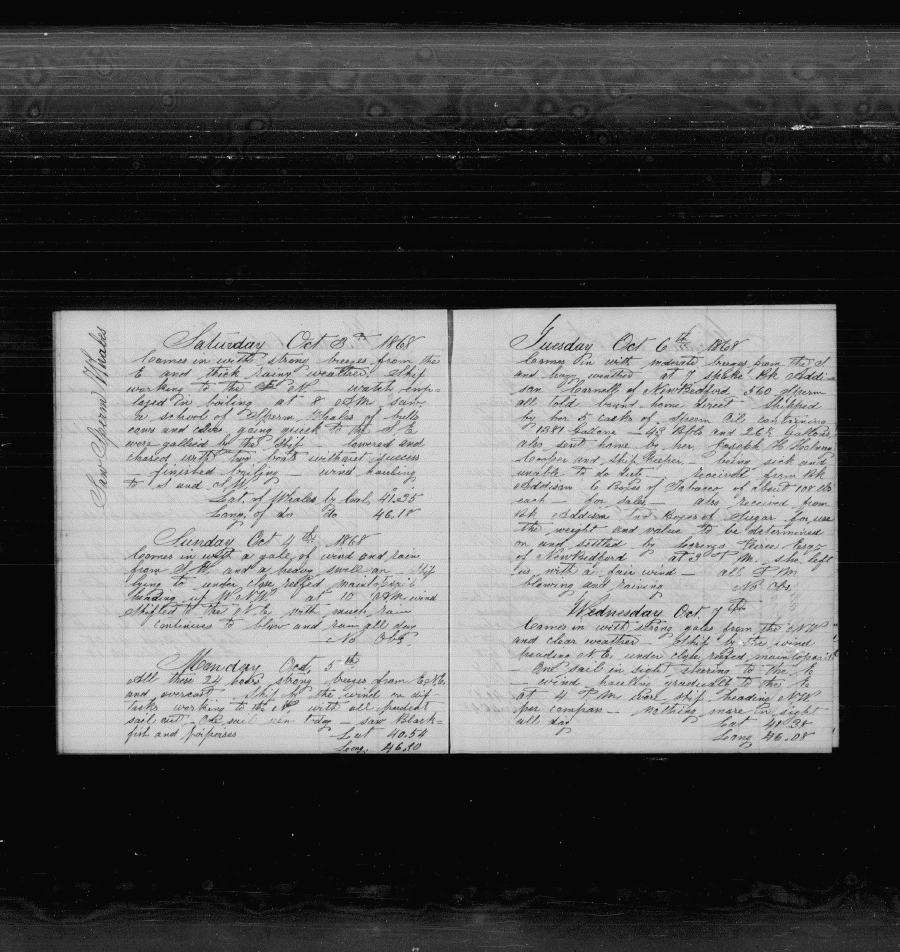 Saw Sperm Whales
Saturday Oct 3th 1868
Comes in with strong breezes from the
E and thick rainy weather Ship
working to the N watch emp-
loyed in boiling at 8 AM saw
a school of Sperm Whales of bulls
cows and calves going quick to the S E
were gallied by the ship — lowered and
chased with two boats without success
— finished boiling — wind hauling
to S and S W
Lat. of Whales by Cal, 41.25
Long. of do do 46.18
Sunday Oct 4th 1868
Comes in with a gale of wind and rain
from S and a heavy swell on — Ship
lying to under close reefed maintopsail
heading up W N W at 10 AM wind
shifted to the N.E, with much rain
continues to blow and rain all day
No Obs.
Monday Oct, 5th
All these 24 hours strong breezes from E N E
and overcast ship by the wind on dif-
tacks working to the N, with all prudent
sail out. One sail seen to day — saw Black-
fish and porpoises Lat 40.54
Long, 46.10
Tuesday Oct 6th 1868
Comes in with moderate breezes from the S
and hazy weather at 7 spoke Bk Addi-
son of New Bedford 560 Sperm
all told bound home direct Shipped
by her 5 casks of Sperm Oil containing
1381 Gallons — 43 Bbls and 26½ Gallons
also sent home by her Joseph H
Cooper and Ship Keeper — being sick and
unable to do duty Received from Bk
Addison 6 Boxes of Tobacco of about 108 lb
each — for sales also received from
Bk Addison two Boxes of Sugar for use
the weight and value to be determined
on and settled by Lorenzo Peirce Esq-
of New Bedford at 3 P M. she left
us with a fair wind — all P M
blowing and raining No Obs
Wednesday Oct 7th
Comes in with strong gales from the NW
and clear weather Ship by the wind
heading N.E. under close reefed maintopsail
— One sail in sight steering to the E
— wind hauling gradually to the E
at 4 P M wore ship heading NW
per compass — Nothing more in sight
all day Lat 41.38
Long 46.08